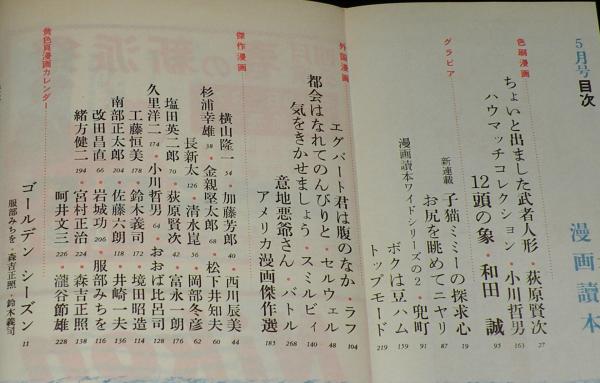 5月号目次
漫画読本
色刷漫画
ちょいと出ました武者人形・荻原賢次 27
ハウマッチコレクション・小川哲男 163
12頭の象・和田誠 95
グラビア
新連載 子猫ミミーの探求心 19
お尻を眺めてニヤリ・兜町 87
漫画讀本ワイドシリーズの2・ボクは豆ハム 91
159
トップモード 219
外国漫画
エグバート君は腹のなか・ラフ 104
都会はなれてのんびりと・セルウェル 48
気をきかせましょう・スミルビィ 140
意地悪爺さん・バトル 268
アメリカ漫画傑作選 185
傑作漫画
横山隆一 54・加藤芳郎 40・西川辰美 44
杉浦幸雄 38・金親堅太郎 68・松下井知夫 60
長新太 126・清水崑 36・岡部冬彦 62
塩田英二郎 70・荻原賢次 42・富永一朗 176
久里洋二 174・小川哲男 64・おおば比呂司
工藤恒美 178・鈴木義司 172・境田昭造 114
南部正太郎 204・佐藤六朗 118・井崎一夫 136
改田昌直 66・岩城功 206・服部みちを 116
緒方健二 194・宮村正治 224・森吉正照 138
呵井文三 226・瀧谷節雄 228
黄色頁漫画カレンダー
ゴールデン シーズン 11
服部みちを・森吉正照・鈴木義司